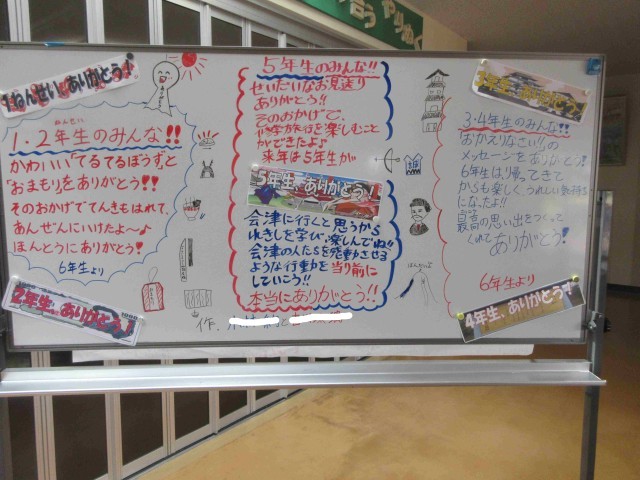 やりぬく
1ねんせい、ありがとう♪
1.2年生のみんな!!
かわいい「てるてるぼうず」と
「おまもり」をありがとう!!
そのおかげでてんきもはれて、
あんぜんにいけたよ～♪
ほんとうにありがとう!
6年生より
2年生、ありがとう♪
5年生のみんな!!
せいだいなお見送り
ありがとう!!
そのおかげで、
修学旅行を楽しむこと
ができたよ♪
来年は5年生が
5年生、ありがとう♪
会津に行くと思うから
れきしを学び、楽しんでね!!
会津の人たちを感動させる
ような行動を当り前に
していこう!!
本当にありがとう!!
作.
3年生、ありがとう♪
3・4年生のみんな!!
「おかえりなさい!!」の
メッセージをありがとう!
6年生は帰ってきて
からも楽しく、うれしい気持ち
になったよ!!
最高の思い出をつくって
くれてありがとう!
6年生より
4年生、ありがとう♪